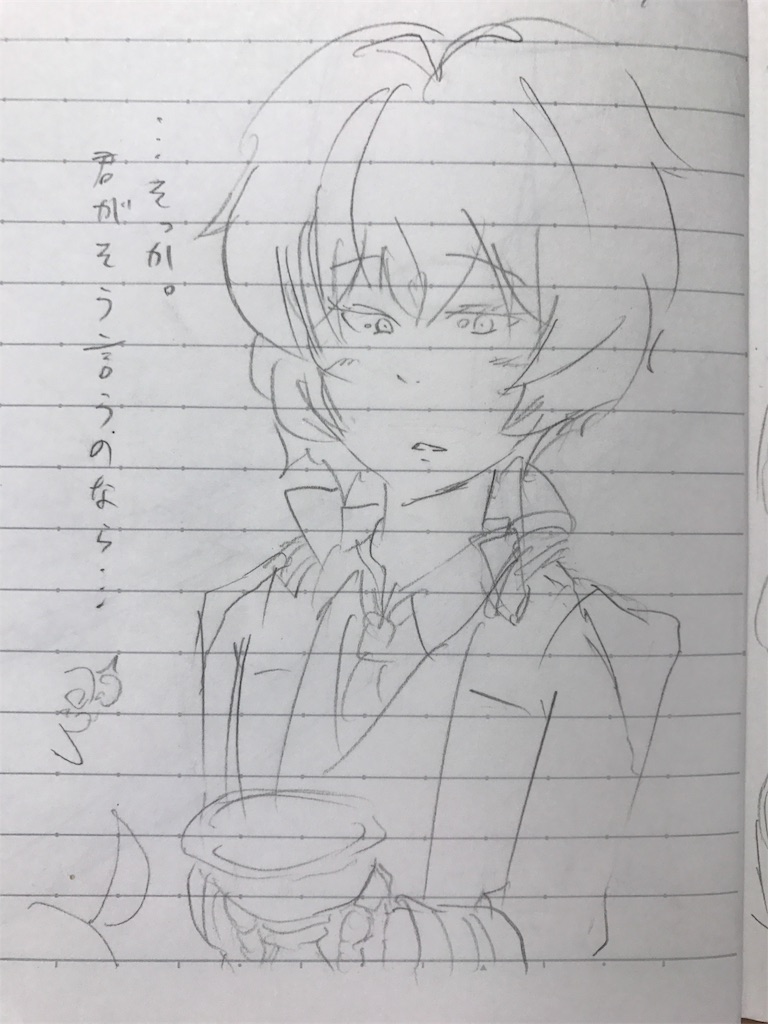 …そっか。
君がそう言うのなら…